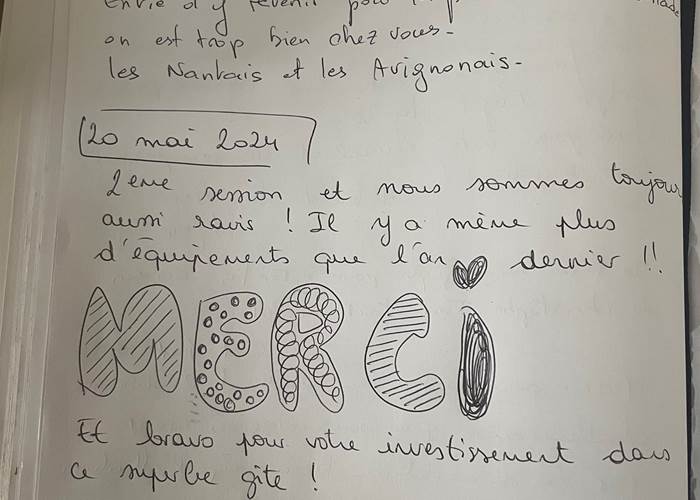 envie d'y revenir pour
on est trop bien chez vous-
les Nantais et les Avignonais-
20 mai 2024
2eme session et nous sommes toujour
aussi ravis ! Il y a même plus
d'équipements que l'an dernier !!
MERCi
Et bravo pour votre investissement dans
ce superbe gîte !